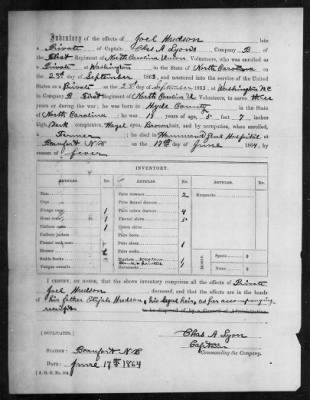 Inventory of the effects of Joel Hudson late
a Private of Captain Chas A Lyons Company D of
the First Regiment of North Carolina Union Volunteers, who was enrolled as
Private at Washington in the State of North Carolina on
the 23d day of September 1863, and mustered into the service of the United
States as a Private on the 23 day of September 1863 at Washington NC
in Company D First Regiment of North Carolina U Volunteers, to serve three
years or during the war; he was born in Hyde County in the State
of North Carolina; he was 18 years of age, 5 feet 7 inches
high, Dark complexion, Hazel eyes, Brown hair, and by occupation, when enrolled,
a Farmer; he died in Hammond Genl Hospital at
Beaufort N.C. on the 17th day of June 1864, by
reason of fever
INVENTORY.
ARTICLES. No. ARTICLES. No. ARTICLES. No.
Hats Pairs trowsers 2 Knapsacks
Caps Pairs flannel drawers
Forage caps 1 Pairs cotton drawers 4
Great coats 1 Flannel shirts 3
Uniform coats 1 Cotton shirts
Uniform jackets Pairs boots
Flannel sack coats Pairs shoes 1
Blouses Pairs socks
Stable frocks Blankets
Fatigue overalls Haversacks
I CERTIFY, ON HONOR, that the above inventory comprises all the effects of Private
Joel Hudson deceased, and that the effects are in the hands
of his father Elijah Hudson, his legal heir, as per accompanying
receipt to be disposed of by a Council of Administration.
[DUPLICATES.]
Chas A Lyon
Captain
Commanding the Company.
STATION: Beaufort N.C.
DATE: June 17th 1864